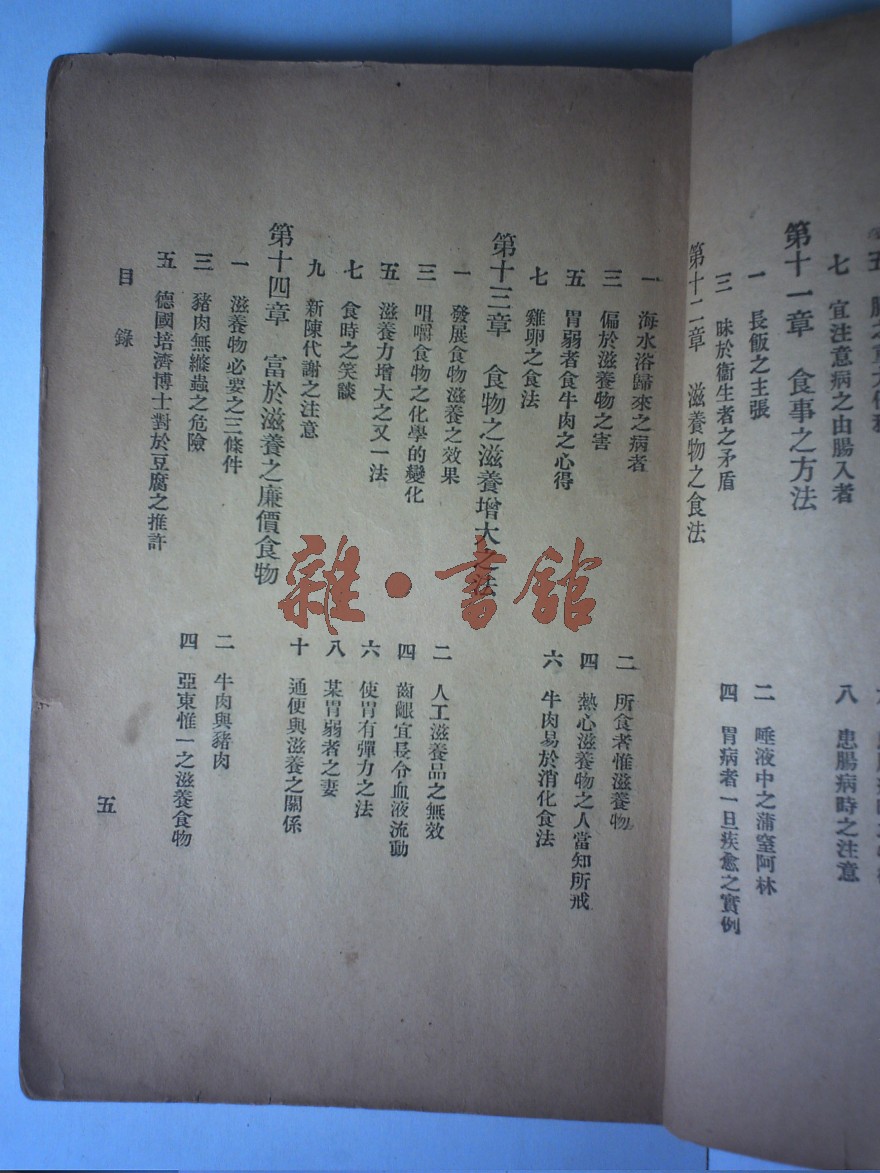 七　宜注意病之由腸入者
八　患腸病時之注意
第十一章　食事之方法
一　長飯之主張
二　唾液中之蒲窒阿林
三　昧於衞生者之矛盾
四　胃病者一旦疾愈之實例
第十二章　滋養物之食法
一　海水浴歸來之病者
二　所食者惟滋養物
三　偏於滋養物之害
四　熱心滋養物之人當知所戒
五　胃弱者食牛肉之心得
六　牛肉易於消化食法
七　雞卵之食法
第十三章　食物之滋養增大之法
一　發展食物滋養之效果
二　人工滋養品之無效
三　咀嚼食物之化學的變化
四　齒齦宜長令血液流動
五　滋養力增大之又一法
六　使胃有彈力之法
七　食時之笑談
八　某胃弱者之妻
九　新陳代謝之注意
十　通便與滋養之關係
第十四章　富於滋養之廉價食物
一　滋養物必要之三條件
二　牛肉與豬肉
三　豬肉無縧蟲之危險
四　亞東惟一之滋養食物
五　德國培濟博士對於豆腐之推許
目錄
五
雜·書館